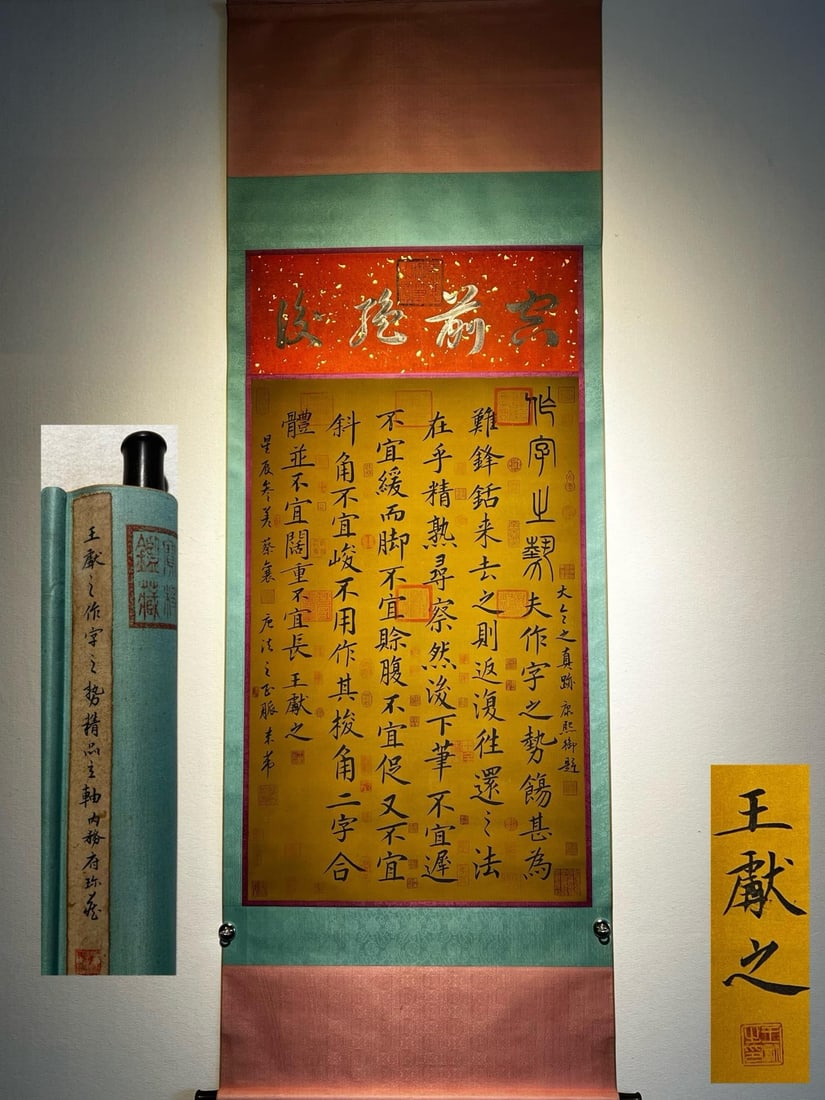 空前絶後
大令之真跡 康熙御題
作字之勢 夫作字之勢飭甚為
難鋒銛来去之則返復往還之法
在乎精熟尋察然後下筆不宜遲
不宜緩而脚不宜賒腹不宜促又不宜
斜角不宜峻不用作其捘角二字合
體並不宜闊重不宜長 王獻之
星辰參差蔡襄 法之正脈 米芾
王獻之作字之勢精品立軸內務府珍藏
鑑藏
王獻之